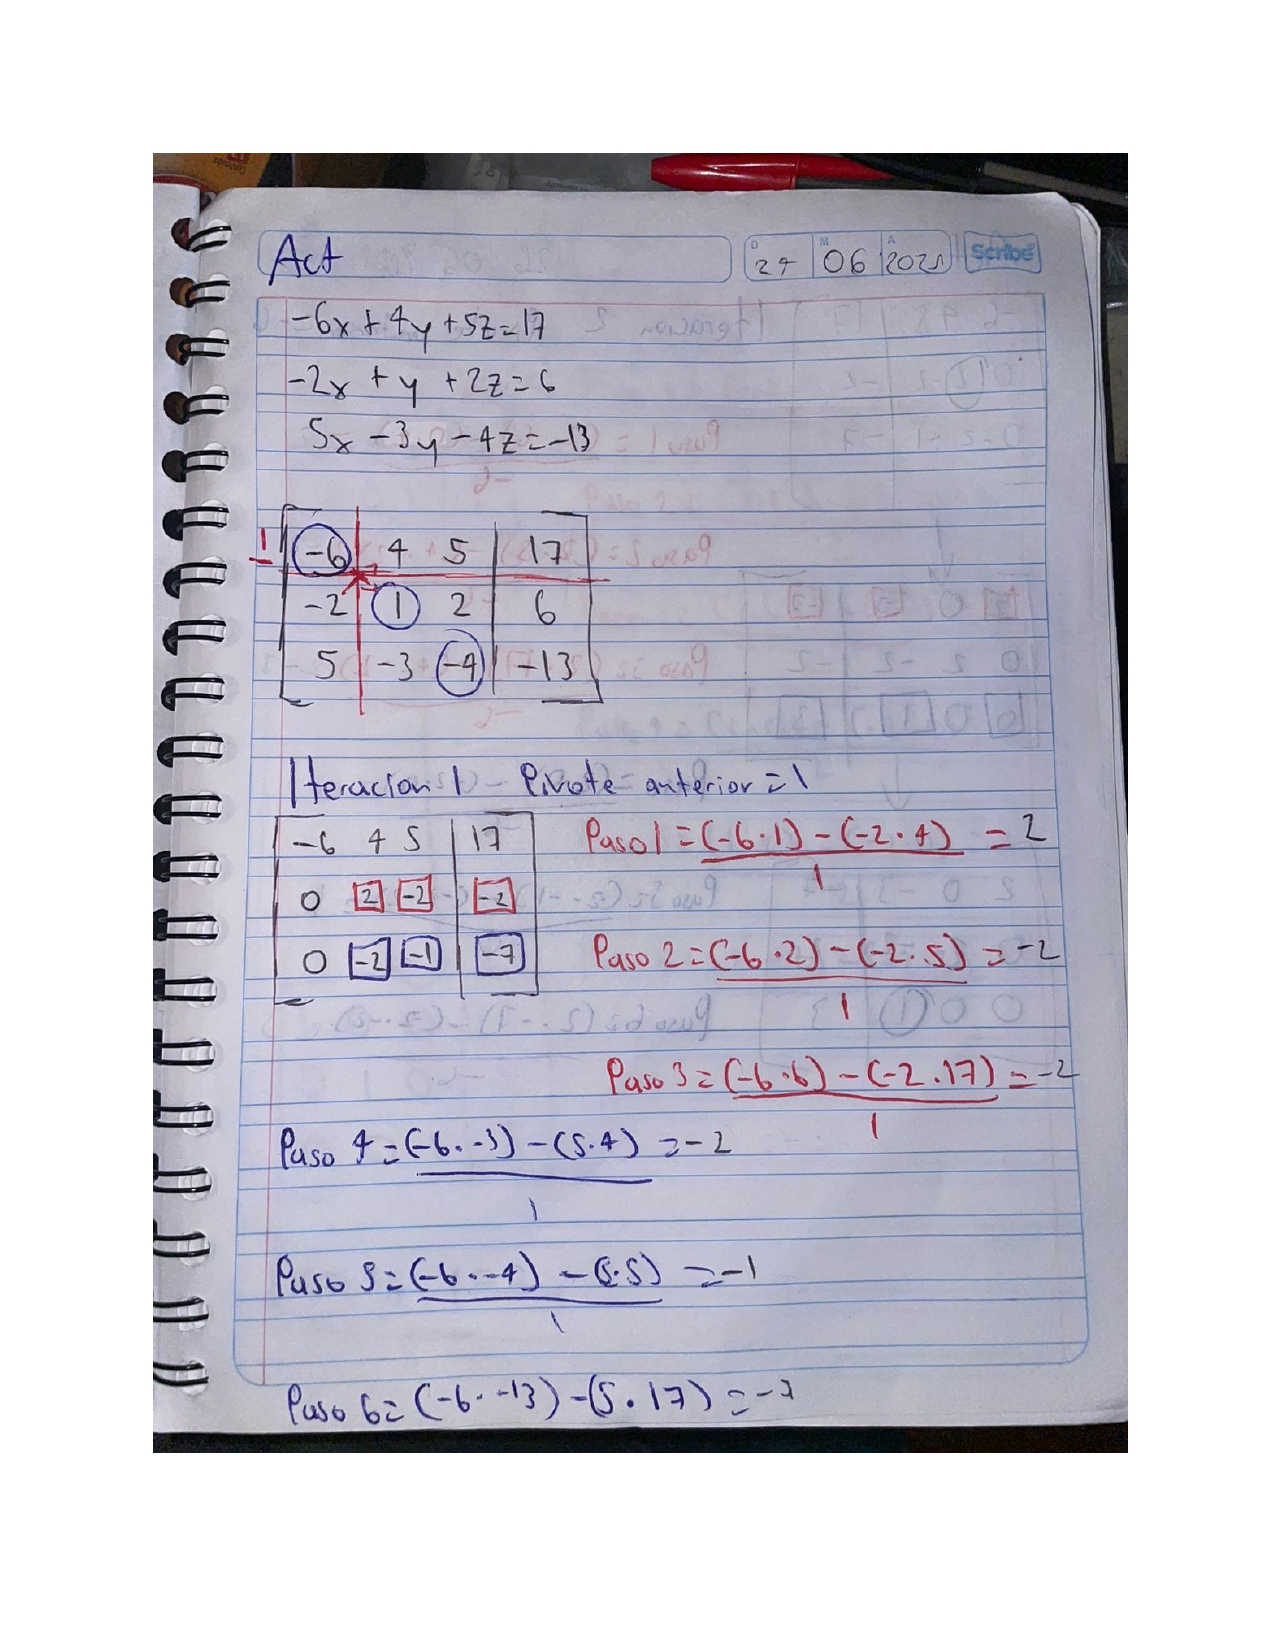 Act
D M A
27 06 2021 Scribe
-6x+4y+5z=17
-2x+y+2z=6
5x-3y-4z=-13
1 -6 4 5 | 17
-2 1 2 | 6
5 -3 -4 | -13
Iteracion 1 - Pivote anterior = 1
-6 4 5 | 17
0 2 -2 | -2
0 -2 -1 | -7
Paso 1 = (-6·1) - (-2·4) = 2
1
Paso 2 = (-6·2) - (-2·5) = -2
1
Paso 3 = (-6·6) - (-2·17) = -2
1
Paso 4 = (-6·-3) - (5·4) = -2
1
Paso 5 = (-6·-4) - (5·5) = -1
1
Paso 6 = (-6·-13) - (5·17) = -7